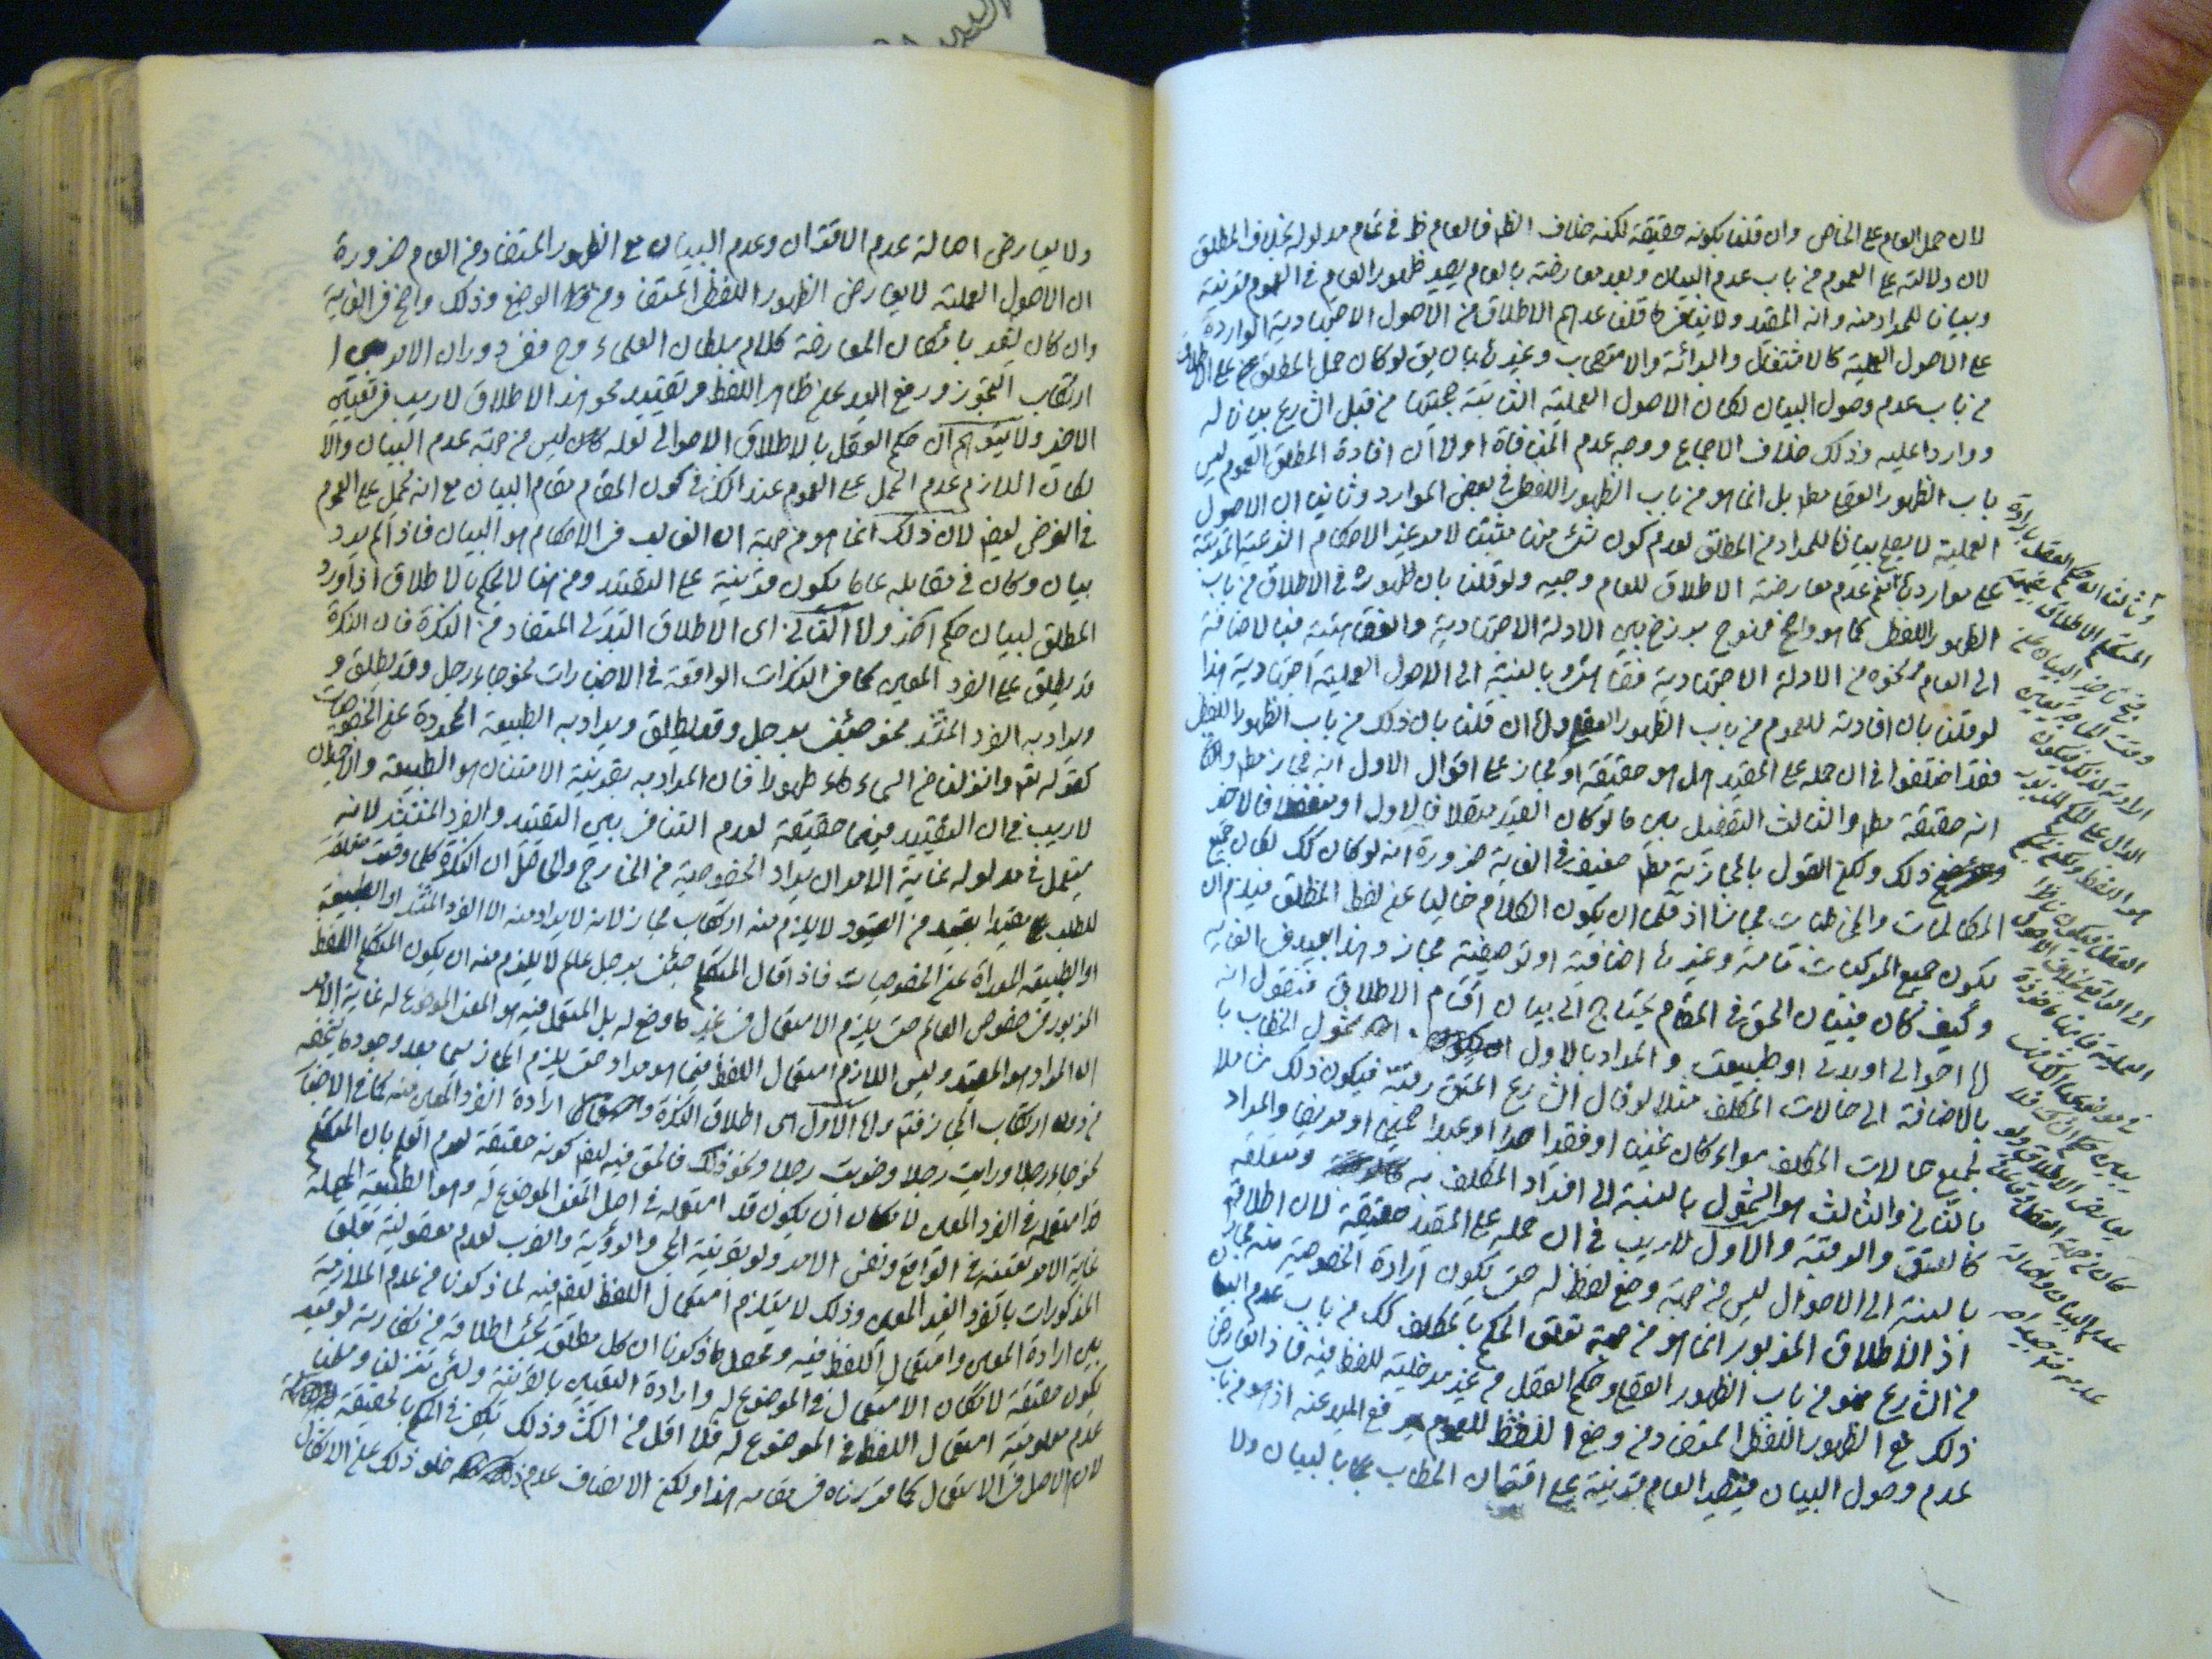 لان حمل العام على الخاص وان قلنا بكونه حقيقة لكنه خلاف الظم فالعام ظ في تمام مدلوله بخلاف المطلق
لان دلالته على العموم من باب عدم البيان وبعد معارضته بالعام يصير ظهور العام في العموم قرينة
وبيانا للمراد منه وانه المقيد ولا ينافى ما قلنا عدهم الاطلاق من الاصول الاجتهادية الواردة
على الاصول العملية كالاشتغال والبرائة والاستصحاب وغيرها بان يق لو كان حمل المطلق على الاطلاق
من باب عدم وصول البيان لكان الاصول العملية الثابتة حجيتها من قبل الشارع بيانا له
وواردا عليه وذلك خلاف الاجماع ووجه عدم المنافاة اولا ان افادة المطلق العموم ليس
باب الظهور العقلى مطم بل انما هو من باب الظهور اللفظى في بعض الموارد وثانيا ان الاصول
العملية لا يصلح بيانا للمراد من المطلق لعدم كون شئ منها مثبتا لامر غير الاحكام الشرعية المترتبة
على مواردها نعم عدم معارضة الاطلاق للعام وجيه ولو قلنا بان ظهوره في الاطلاق من باب
الظهور اللفظى كما هو واضح فهو برزخ بين الادلة الاجتهادية والفقاهتية فبالاضافة
الى العام ونحوه من الادلة الاجتهادية فقاهتى وبالنسبة الى الاصول العملية اجتهادية هذا
لو قلنا بان افادته للعموم من باب الظهور العقلى واما ان قلنا بان ذلك من باب الظهور اللفظى
فقد اختلفوا في ان حمله على المقيد هل هو حقيقة او مجاز على اقوال الاول انه مجاز مطم والثانى
انه حقيقة مطم والثالث التفصيل بين ما لو كان القيد متصلا فالاول او منفصلا فالاخر
ذلك ولكن القول بالمجازية مطم ضعيف في الغاية ضرورة انه لو كان كك لكان جميع
المكالمات والمخاطبات مجازا اذ قلما ان يكون الكلام خاليا عن لفظ المطلق فيلزم ان
يكون جميع المركبات تامة وغيرها اضافية او توصيفية مجاز وهذا بعيد في الغاية
وكيف كان فبيان الحق في المقام يحتاج الى بيان اقسام الاطلاق فنقول انه
اما احوالى او بدلى او طبيعى والمراد بالاول شمول الخطاب با
بالاضافة الى حالات المكلف مثلا لو قال الشارع اعتق رقبة فيكون ذلك شاملا
لجميع حالات المكلف سواء كان غنيا او فقيرا حرا او عبدا صحيحا او مريضا والمراد
بالثانى والثالث هو الشمول بالنسبة الى افراد المكلف به ومتعلقه
كالعتق والرقبة والاول لا ريب في ان حمله على المقيد حقيقة لان اطلاقه
بالنسبة الى الاحوال ليس من جهة وضع لفظ له حتى يكون ارادة الخصوصية منه مجازا
اذ الاطلاق المزبور انما هو من جهة تعلق الحكم بالمكلف كك من باب عدم البيان
من الشارع فهو من باب الظهور العقلى وحكم العقل من غير مدخلية للفظ فيه فاذا تعارض
ذلك مع الظهور اللفظى المستفاد من وضع اللفظ للعموم يرفع اليد عنه اذ هو من باب
عدم وصول البيان فيصير العام قرينة على اقتران الخطاب بالبيان ولا
وثالثا ان حكم العقل بارادة
المتكلم الاطلاق
قبح تاخير البيان عن
وقت الحاجة
ولا يعارض اصالة عدم الاقتران وعدم البيان مع الظهور المستفاد من العام ضرورة
ان الاصول العملية لا يعارض الظهور اللفظى المستفاد من الوضع وذلك واضح في الغاية
وان كان يشعر بامكان المعارضة كلام سلطان العلماء وح ففى دوران الامر بين ا
ارتكاب التجوز ورفع اليد عن ظاهر اللفظ وتقييد نحو هذا الاطلاق لا ريب في تعيين
الاخير ولا يتوهم ان حكم العقل بالاطلاق الاحوالى ليس من جهة عدم البيان والا
لكان اللازم عدم الحمل على العموم عند الشك في كون المقام مقام البيان مع انه يحمل على العموم
في الفرض ايضا لان ذلك انما هو من جهة ان الغالب في الاحكام هو البيان فاذا لم يرد
بيان وكان في مقابله عام يكون قرينة على التقييد ومن هنا لا نحكم بالاطلاق اذا ورد
المطلق لبيان حكم آخر واما الثانى اى الاطلاق البدلى المستفاد من النكرة فان النكرة
قد يطلق على الفرد المعين كما في النكرات الواقعة في الاخبارات نحو جاء رجل وقد يطلق و
ويراد به الفرد المنتشر نحو جئنى برجل وقد يطلق ويراد به الطبيعة المجردة عن الخصوصيات
كقوله تعم وانزلنا من السماء ماء طهورا فان المراد به بقرينة الامتنان هو الطبيعة والاخيران
لا ريب في ان التقييد فيهما حقيقة لعدم التنافى بين التقييد والفرد المنتشر لانه
يستعمل في مدلوله غاية الامر ان يراد الخصوصية من الخارج والحاصل ان النكرة كلما وقعت متعلقة
للطلب مقيدا بقيد من القيود لا يلزم منه ارتكاب مجاز لانه لا يراد منه الا الفرد المنتشر او الطبيعة
او الطبيعة المعراة عن الخصوصيات فاذا قال المتكلم جئنى برجل عالم لا يلزم منه ان يكون المتكلم اللفظ
المزبور في خصوص العالم حتى يلزم الاستعمال في غير ما وضع له بل المستعمل فيه هو المعنى الموضوع له غاية الامر
ان المراد هو المقيد وليس اللازم استعمال اللفظ فيما هو مراد حتى يلزم المجاز سيما بعد وجود ما يتخلص
من دون ارتكاب المجاز فتم واما الاول اى اطلاق النكرة وارادة الفرد المعين منه كما في الاخبار
نحو جاء رجل ورايت رجلا وضربت رجلا ونحو ذلك فالحق فيه ايضا كونه حقيقة لعدم العلم بان المتكلم
قد استعمله في الفرد المعين لامكان ان يكون قد استعمله في اصل المعنى الموضوع له وهو الطبيعة المهملة
غاية الامر تعينه في الواقع ونفس الامر ولو بقرينة المجئ والرؤية والضرب لعدم معقولية تعلق
المذكورات بالفرد الغير المعين وذلك لا يستلزم استعمال اللفظ ايضا فيه لما ذكرنا من عدم الملازمة
بين ارادة المعين واستعمال اللفظ فيه وتحصل مما ذكرنا ان كل مطلق نحن اطلاقه
يكون حقيقة لامكان الاستعمال في الموضوع له وارادة التعيين بالقرينة ولئن تنزلنا وقلنا
عدم معلومية استعمال اللفظ في الموضوع له فلا اقل من الشك وذلك يكفى في الحكم بالحقيقة
لان الاصل في الاستعمال كما قررناه في مقامه هذا ولكن الانصاف عدم خلو ذلك عن الاشكال